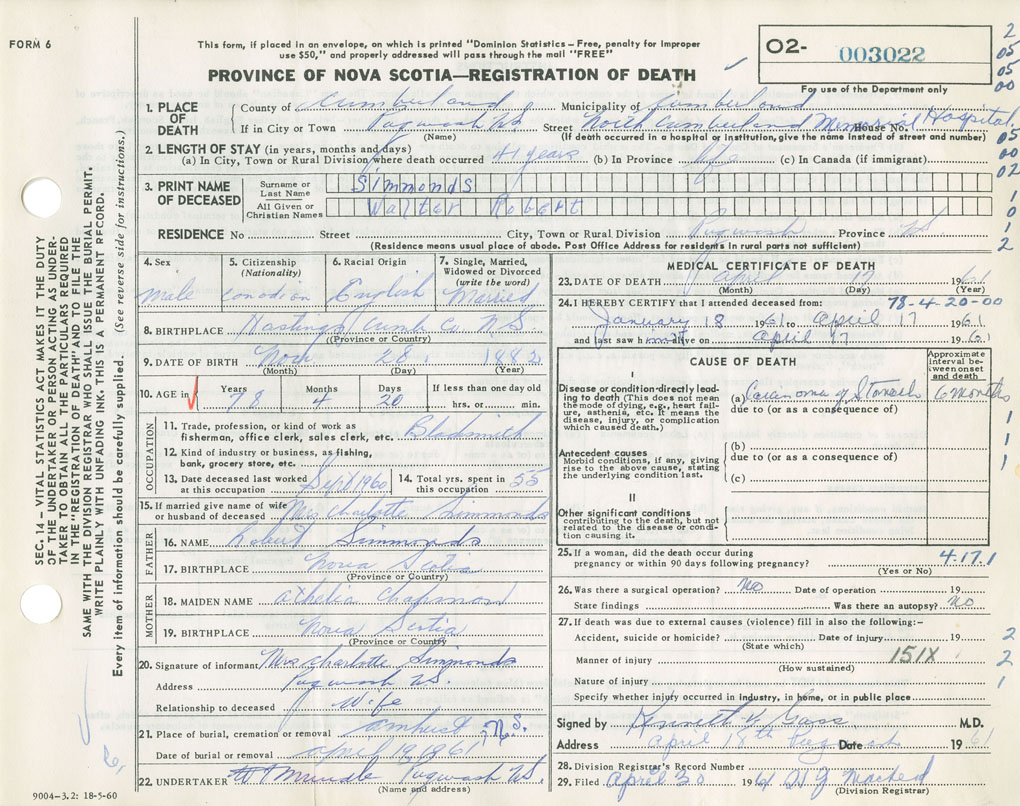 FORM 6
This form, if placed in an envelope, on which is printed "Dominion Statistics – Free, penalty for improper
use $50," and properly addressed will pass through the mail "FREE"
PROVINCE OF NOVA SCOTIA—REGISTRATION OF DEATH
02- 003022
For use of the Department only
2
05
05
00
05
00
02
1
0
1
2
SEC. 14 – VITAL STATISTICS ACT MAKES IT THE DUTY
OF THE UNDERTAKER OR PERSON ACTING AS UNDER-
TAKER TO OBTAIN ALL THE PARTICULARS REQUIRED
IN THE "REGISTRATION OF DEATH" AND TO FILE THE
SAME WITH THE DIVISION REGISTRAR WHO SHALL ISSUE THE BURIAL PERMIT.
WRITE PLAINLY WITH UNFADING INK. THIS IS A PERMANENT RECORD.
Every item of information should be carefully supplied. (See reverse side for instructions.)
1. PLACE OF DEATH
County of Cumberland Municipality of Cumberland
If in City or Town Pugwash N.S. Street North Cumberland Memorial Hospital House No.
(Name) (If death occurred in a hospital or institution, give the name instead of street and number)
2. LENGTH OF STAY (in years, months and days)
(a) In City, Town or Rural Division where death occurred 41 years (b) In Province life (c) In Canada (if immigrant)
3. PRINT NAME OF DECEASED
Surname or Last Name Simmonds
All Given or Christian Names Walter Robert
RESIDENCE No Street City, Town or Rural Division Pugwash Province NS
(Residence means usual place of abode. Post Office Address for residents in rural parts not sufficient)
4. Sex male
5. Citizenship (Nationality) Canadian
6. Racial Origin English
7. Single, Married, Widowed or Divorced (write the word) Married
8. BIRTHPLACE Hastings Cumb Co. N.S.
(Province or Country)
9. DATE OF BIRTH Nov 28, 1882
(Month) (Day) (Year)
10. AGE in Years 78 Months 4 Days 20 If less than one day old hrs. or min.
OCCUPATION
11. Trade, profession, or kind of work as
fisherman, office clerk, sales clerk, etc. Blacksmith
12. Kind of industry or business, as fishing,
bank, grocery store, etc.
13. Date deceased last worked at this occupation Sept 1960
14. Total yrs. spent in this occupation 55
15. If married give name of wife
or husband of deceased Mrs Charlotte Simmonds
FATHER
16. NAME Robert Simmonds
17. BIRTHPLACE Nova Scotia
(Province or Country)
MOTHER
18. MAIDEN NAME Athelia Chapman
19. BIRTHPLACE Nova Scotia
(Province or Country)
20. Signature of informant Mrs Charlotte Simmonds
Address Pugwash N.S.
Relationship to deceased Wife
21. Place of burial, cremation or removal Amherst N.S.
Date of burial or removal April 19, 1961
22. UNDERTAKER Mundle Pugwash N.S.
(Name and address)
9004–3.2: 18-5-60
MEDICAL CERTIFICATE OF DEATH
23. DATE OF DEATH April 17 1961
(Month) (Day) (Year)
24. I HEREBY CERTIFY that I attended deceased from: 78-4-20-00
January 18 1961 to April 17 1961
and last saw h alive on April 17 1961
CAUSE OF DEATH
Approximate interval between onset and death
I
Disease or condition directly lead-
ing to death (This does not mean
the mode of dying, e.g., heart failure,
asthenia, etc. It means the
disease, injury, or complication
which caused death.)
(a) Carcinoma of Stomach 6 months
due to (or as a consequence of)
Antecedent causes
Morbid conditions, if any, giving
rise to the above cause, stating
the underlying condition last.
(b)
due to (or as a consequence of)
(c)
II
Other significant conditions
contributing to the death, but not
related to the disease or condi-
tion causing it.
1
1
1
25. If a woman, did the death occur during
pregnancy or within 90 days following pregnancy? 4.17.1
(Yes or No)
26. Was there a surgical operation? No Date of operation 19
State findings Was there an autopsy? No
27. If death was due to external causes (violence) fill in also the following:-
Accident, suicide or homicide? Date of injury 19
(State which)
Manner of injury 151X
(How sustained)
Nature of injury
Specify whether injury occurred in industry, in home, or in public place
2
2
1
Signed by Kenneth V. Gass M.D.
Address April 18th Pugwash Date 1961
28. Division Registrar's Record Number
29. Filed April 30 1961
(Division Registrar)